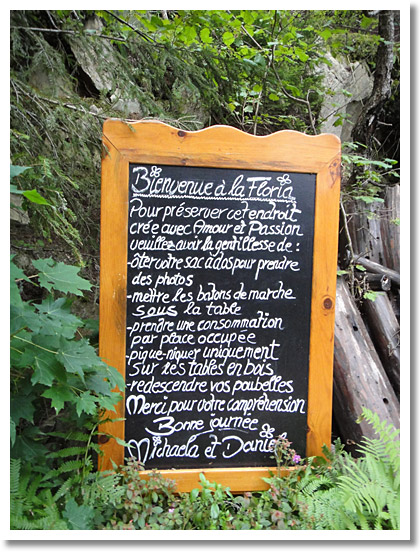 Bienvenue à la Floria
Pour préserver cet endroit
crée avec Amour et Passion
veuillez avoir la gentillesse de :
-ôter votre sac à dos pour prendre
des photos
-mettre les batons de marche
sous la table
-prendre une consommation
par place occupée
-pique-niquer uniquement
sur les tables en bois
-redescendre vos poubelles
Merci pour votre compréhension
Bonne journée
Michaela et Dante